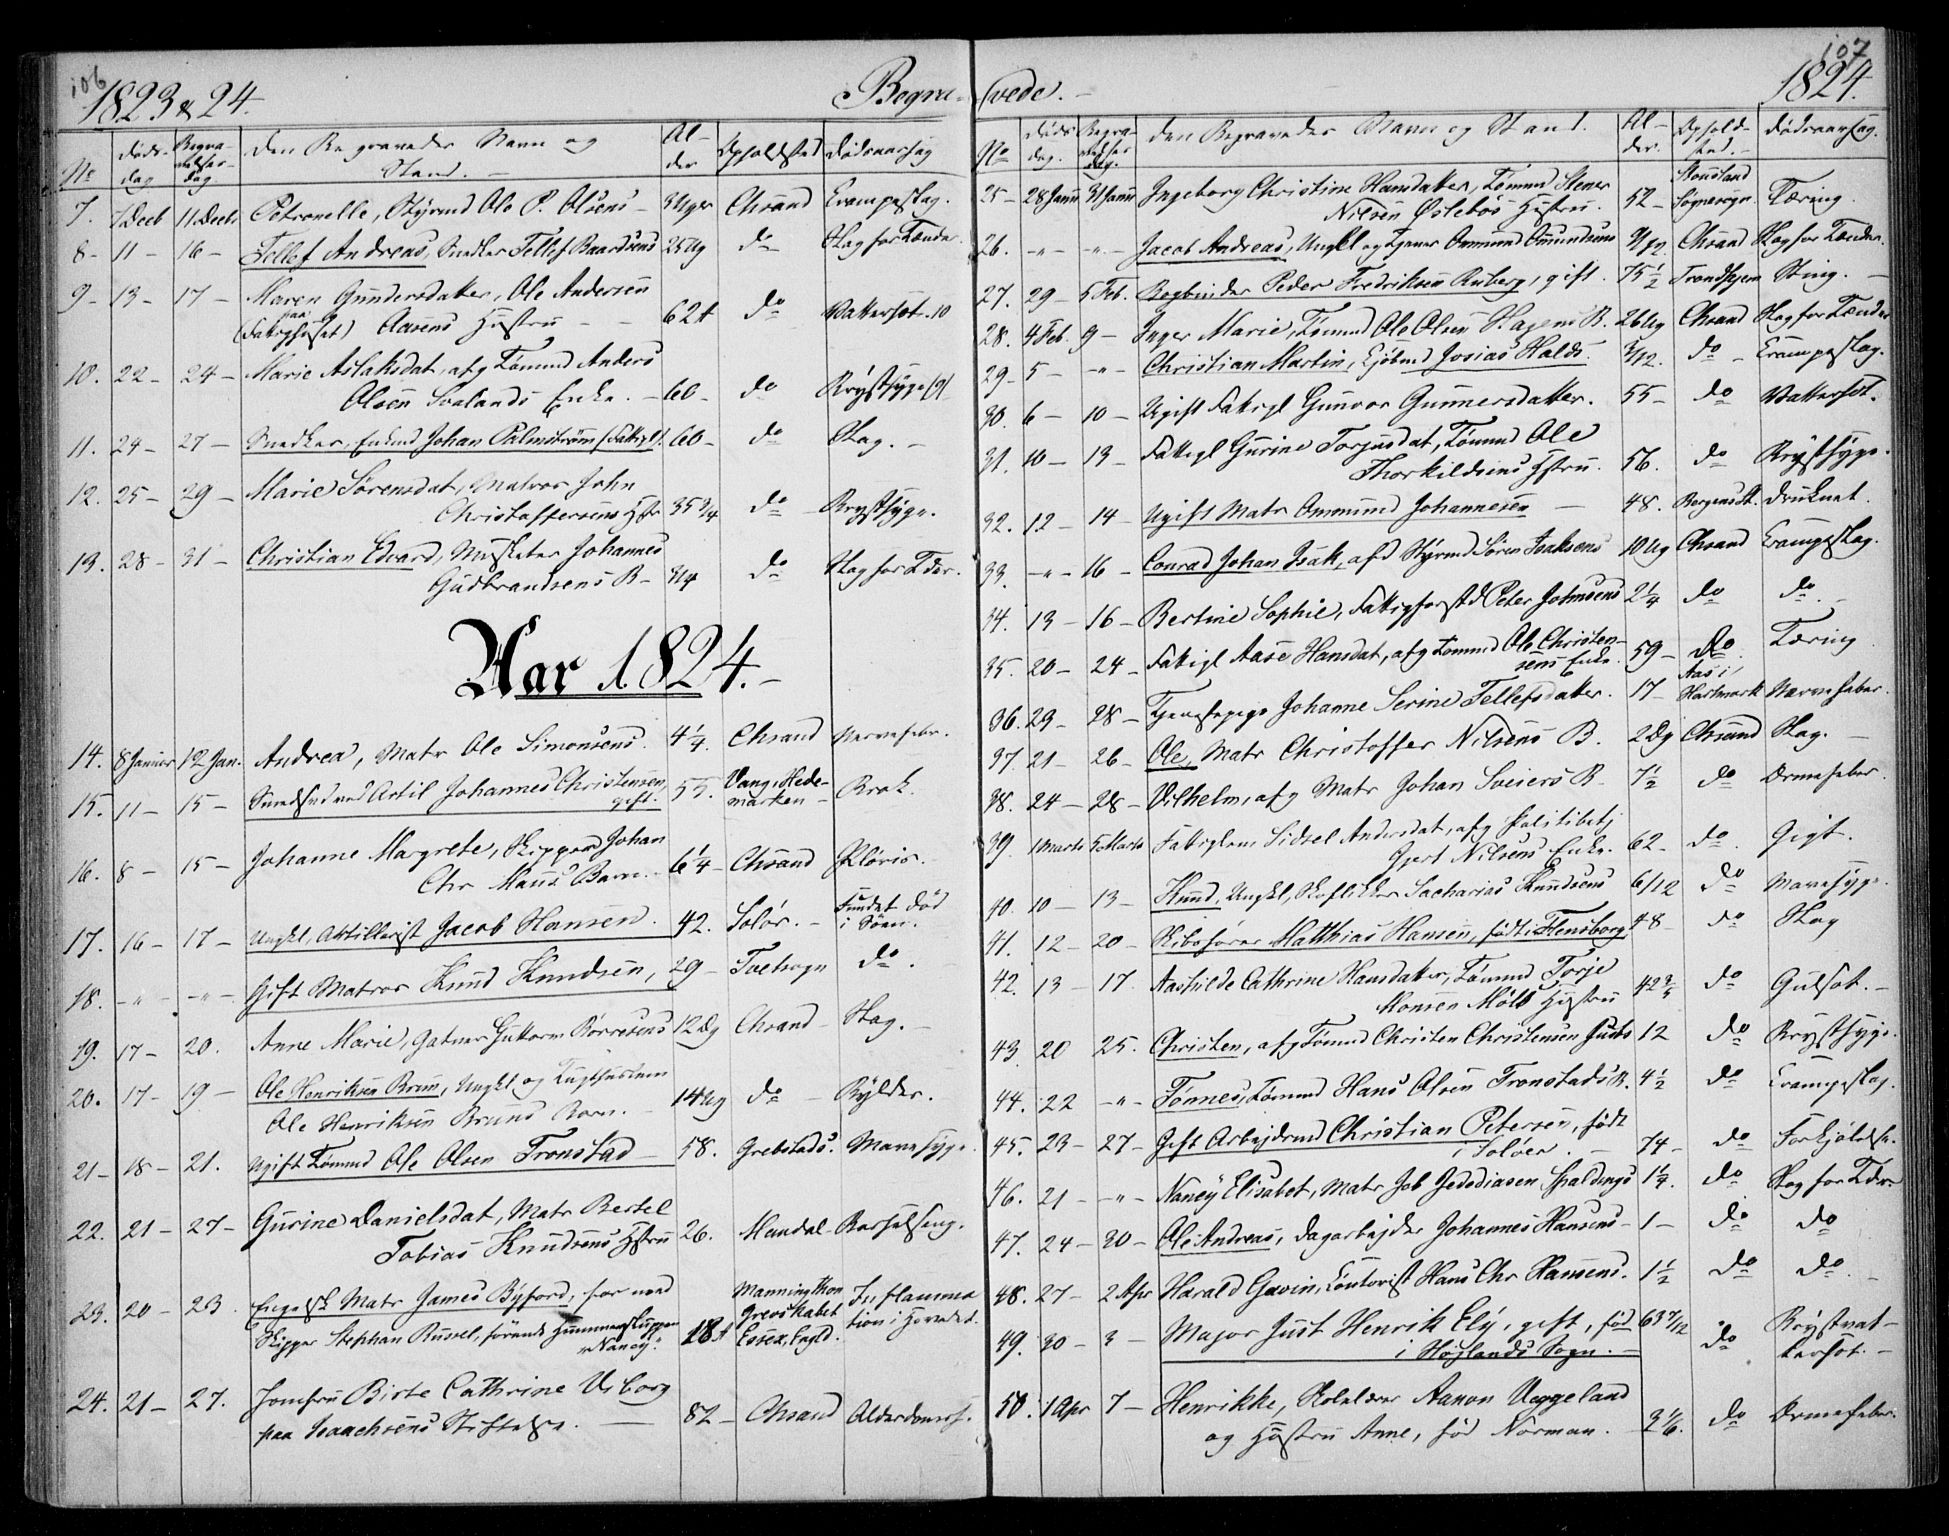 106
1823 & 24.
Begra-
No
Døds-dag
Begra-velses-dag
Den Begravedes Navn og Stand. –
Al-der
Opholdsted
Dødsaarsag
7. 7 Decb 11 Decbr Petronelle, Styrmd Ole P. Olsens – 3 Uger Chrsand Krampeslag.
8 – 11 – 16 – Tellef Andreas, Snedker Tellef Baardsens 25 Ug do Slag for Tænder.
9 – 13 – 17 – Maren Gundersdatter, Ole Andersen
(paa Fattighuset) Aasens Hustru – – 62 A do Vattersot.
10. 22 – 24 – Marie Aslaksdat, afg Tømmd Anders
Olsen Svalands Enke. – 60 – do Brystsyge
11. 24 – 27 – Snedker, Enkmd Johan Palmstrøm (Fattigl). 60 – do Slag. –
12. 25 – 29 – Marie Sørensdat, Matros John
Christoffersens Hstr 35 3/4 do Brystsyge.
13. 28 – 31 – Christian Edvard, Musketer Johannes
Gudbrandsens B – 3/4 do Slag for Tder.
Aar 1824. –
14. 8 Januar 12 Jan. Andrea, Matr Ole Simonsens. 4 1/4. Chrsand Nervefeber.
15. 11 – 15 – Smedsvend Artil Johannes Christensen, gift. 55. Vang, Hede-marken – Brok.
16. 8 – 15 – Johanne Margrete, Skipper Johan
Chr Maus's Barn. – 6 1/4 – Chrsand
17. 16 – 17 – Ungkl, Artillerist Jacob Hansen. 42. Solør. – Fundet død i Søen.
18. – " – – " – Gift Matros Knud Knudsen, 29 – Tvetsogn do.
19. 17 – 20. Anne Marie, Gatner Guttorm Børresens 12 Dg Chrsand – Slag. –
20. 17 – 19 – Ole Henriksen Brun, Ungkl og Tugthuslem
Ole Henriksen Bruns Barn. – 14 Ug do – Bylder.
21 – 18 – 21. Ugift Tømmd Ole Olsen Tronstad – 58. Grebstads. Mavesyge.
22. 21 – 27 – Gurine Danielsdat, Matr Bertel
Tobias Knudsens Hstru 26. Mandal Barselseng.
23. 20 – 23. Engelsk Matr James Byford, for med
Skipper Stephan Russel, førende Hummerskuppen "Nancy". 18 A Manningthon Grevskabet Essex, Engld. Inflamma-tion i Hovedet.
24. 21 – 27. Jomfru Birte Cathrine Viborg
paa Isaachsens Stiftelse. – 82 – Chrsand Alderdomssv.
107
vede. –
1824.
No
Døds-dag.
Begra-velses-dag.
Den Begravedes Navn og Stand.
Al-der.
Ophold-sted. –
Dødsaarsag.
25 – 28 Janu 31 Janu Ingeborg Christine Hansdatter, Tømmd Stener
Nilsen Oslebøs Hustru. 52 – Søgnesogn. Tæring.
26. – " – " – Jacob Andreas, Ungkl og Tjener Ommund Omundsens 9/12 Chrsand Slag for Tænder.
27. 29 – 5 Feb. Bogbinder Peder Fredriksen Ruberg, gift. 75 1/2 Trondhjem Sting. –
28. 4 Feb. 9 – Inger Marie, Tømmd Ole Olsen Hagens B. 26 Ug Chrsand Slag for Tænder
29 – 5 – – " – Christian Martin, Kjøbmd Josias Halds. 3/12. do – Krampeslag.
30. 6 – 10 – Ugift Fattigl Gunvor Gunnersdatter. 55 – do Vattersot.
31. 10 – 13 – Fattigl Gurine Torjusdat, Tømmd Ole
Thorkildsens Hstru. 56. do Brystsyge.
32. 12 – 14 – Ugift Matr Ommund Johannesen – 48. Bergens St. Druknet.
33. – " – 16 – Conrad Johan Isak, afd Styrmd Søren Isaksens 10 Ug Chrsand Krampeslag.
34. 13 – 16 – Bertine Sophie, Fattigforstd Peter Johnsens 2 1/4 do do. –
35. 20 – 24 – Fattigl Aase Hansdat, afg Tømmd Ole Christen-
sens Enke. 59 – do. Tæring
36. 23 – 28 – Tjenestepige Johanne Serine Tellefsdatter. 17 – Aas i Hartmark Nervefeber.
37. 21 – 26 – Ole, Matr Christoffer Nilsens B. 2 Dg Chrsand Slag. –
38. 24 – 28 – Vilhelm, afg Matr Johan Sveiers B – 7 1/2 do Ormefeber.
39. 1 Marts 5 Marts Fattiglem Sidsel Andersdat, afg Politibetj
Gjert Nilsens Enke. 62 – do. Gigt.
40. 10 – 13 – Knud, Ungkl, Skoflikker Sacharias Knudsens 6/12 do Mavesyge.
41. 12 – 20 – Skibsfører Matthias Hansen, født i Flensborg 48 – do Slag
42. 13 – 17. Aashilde Cathrine Hansdatter, Tømmd Torje
Monsen Mølls Hustru 42 do Gulsot. –
43 20 25. Christen, afg Tømmd Christen Christensen Justs 12 do Brystsyge.
44. 22 – " – Tønnes, Tømmd Hans Olsen Tronstads B. 4 1/2 do Krampeslag.
45. 23 – 27 – Gift Arbejdsmd Christian Petersen, født
i Soløer. – 74 – do Forkjølelse.
46. 21 – – " – Nancy Elisabet, Matr Job Jedediasen Spaldings 1 1/4. do Slag for Tder
47. 24 – 30 – Ole Andreas, Dagarbejder Johannes Hansens – 1 – do do
48. 27 – 2 Apr Harald Gavin, Kontorist Hans Chr Hansens. 1 1/2 do do. –
49. 30 – 3 – Major Just Henrik Ely, gift, fød
i Højlands Sogn. – 63 7/12 do Brystvat-tersot. –
50. 1 Apr 7 – Henrikke, Skolelærer Aanon Ueggeland
og Hustru Anne, fød Norman. 3 1/6. do Ormefeber.